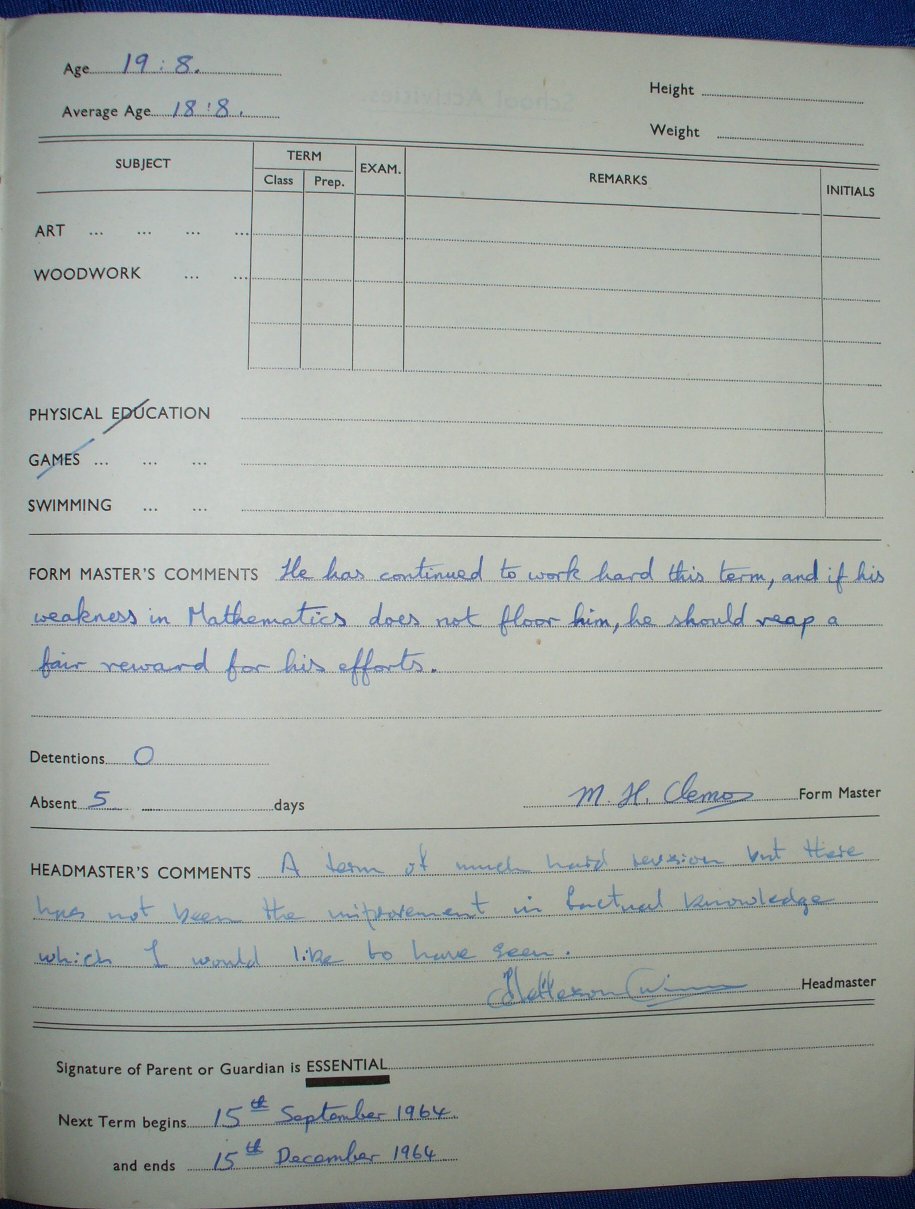 Age 19:8.
Height
Average Age 18:8.
Weight
SUBJECT TERM EXAM. REMARKS INITIALS
Class Prep.
ART ... ... ... ...
WOODWORK ... ...
PHYSICAL EDUCATION
GAMES ... ... ...
SWIMMING ... ...
FORM MASTER'S COMMENTS He has continued to work hard this term, and if his
weakness in Mathematics does not floor him, he should reap a
fair reward for his efforts.
Detentions 0
Absent 5 days
M. H. Clemo Form Master
HEADMASTER'S COMMENTS A term of much hard revision but there
has not been the improvement in factual knowledge
which I would like to have seen.
Headmaster
Signature of Parent or Guardian is ESSENTIAL
Next Term begins 15th September 1964.
and ends 15th December 1964